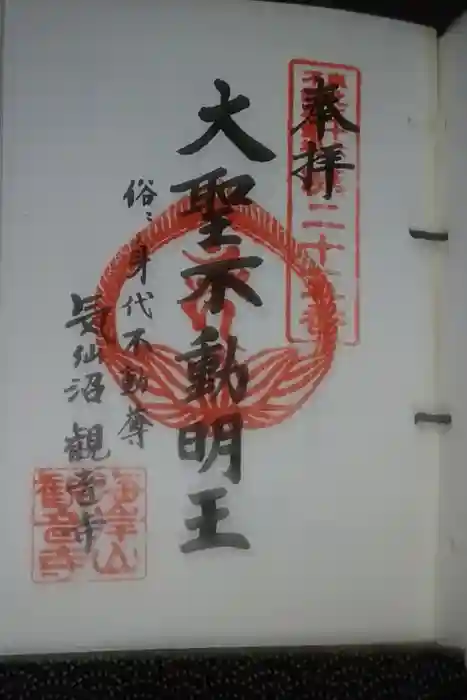 奉拝
大聖不動明王
俗ニ身代不動尊
気仙沼 観音寺
海岸山
観音寺